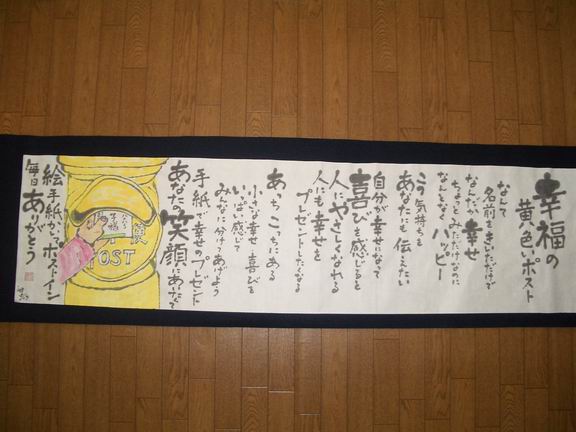 幸福の
黄色いポスト
なんて
名前をきいただけで
なんだか幸せ
ちょっとみただけなのに
なんとなくハッピー
こう気持ちを
あなたにも伝えたい
自分が幸せになって
喜びを感じると
人にやさしくなれる
人にも幸せを
プレゼントしたくなる
あっちこっちにある
小さな幸せ喜びを
いっぱい感じて
みんなに分けてあげよう
手紙で幸せのプレゼント
あなたの笑顔にあいたくて
便
POST
絵手紙がポストイン
毎日ありがとう